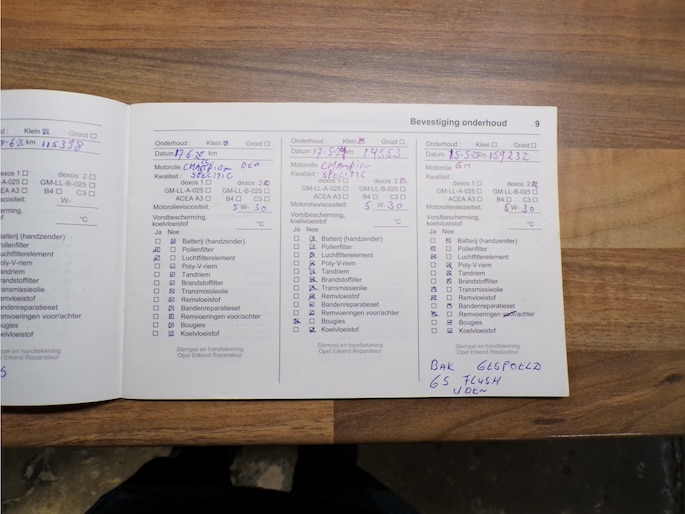 Bevestiging onderhoud 9
Klein Groot
km 115398
dexos 2
GM-LL-B-025
B4 C3
W-
°C
Batterij (handzender)
Pollenfilter
Luchtfilterelement
Poly-V-riem
Tandriem
Brandstoffilter
Transmissieolie
Remvloeistof
Bandenreparatieset
Remvoeringen voor/achter
Bougies
Koelvloeistof
Stempel en handtekening
Opel Erkend Reparateur
Onderhoud: Klein Groot
Datum 17-6- km
Motorolie CHAMPION OEM
Kwaliteit: SPECIFIC
dexos 1 dexos 2
GM-LL-A-025 GM-LL-B-025
ACEA A3 B4 C3
Motorolieviscositeit: 5 W- 30
Vorstbescherming,
koelvloeistof °C
Ja Nee
Batterij (handzender)
Pollenfilter
Luchtfilterelement
Poly-V-riem
Tandriem
Brandstoffilter
Transmissieolie
Remvloeistof
Bandenreparatieset
Remvoeringen voor/achter
Bougies
Koelvloeistof
Stempel en handtekening
Opel Erkend Reparateur
Onderhoud: Klein Groot
Datum 17-5- km 14553
Motorolie CHAMPION
Kwaliteit: SPECIFIC
dexos 1 dexos 2
GM-LL-A-025 GM-LL-B-025
ACEA A3 B4 C3
Motorolieviscositeit: 5 W- 30
Vorstbescherming,
koelvloeistof °C
Ja Nee
Batterij (handzender)
Pollenfilter
Luchtfilterelement
Poly-V-riem
Tandriem
Brandstoffilter
Transmissieolie
Remvloeistof
Bandenreparatieset
Remvoeringen voor/achter
Bougies
Koelvloeistof
Stempel en handtekening
Opel Erkend Reparateur
Onderhoud: Klein Groot
Datum 15-5- km 159232
Motorolie GM
Kwaliteit:
dexos 1 dexos 2
GM-LL-A-025 GM-LL-B-025
ACEA A3 B4 C3
Motorolieviscositeit: 5 W- 30
Vorstbescherming,
koelvloeistof °C
Ja Nee
Batterij (handzender)
Pollenfilter
Luchtfilterelement
Poly-V-riem
Tandriem
Brandstoffilter
Transmissieolie
Remvloeistof
Bandenreparatieset
Remvoeringen voor/achter
Bougies
Koelvloeistof
Stempel en handtekening
Opel Erkend Reparateur
BAK GESPOELD
GS FLUSH
UDEN